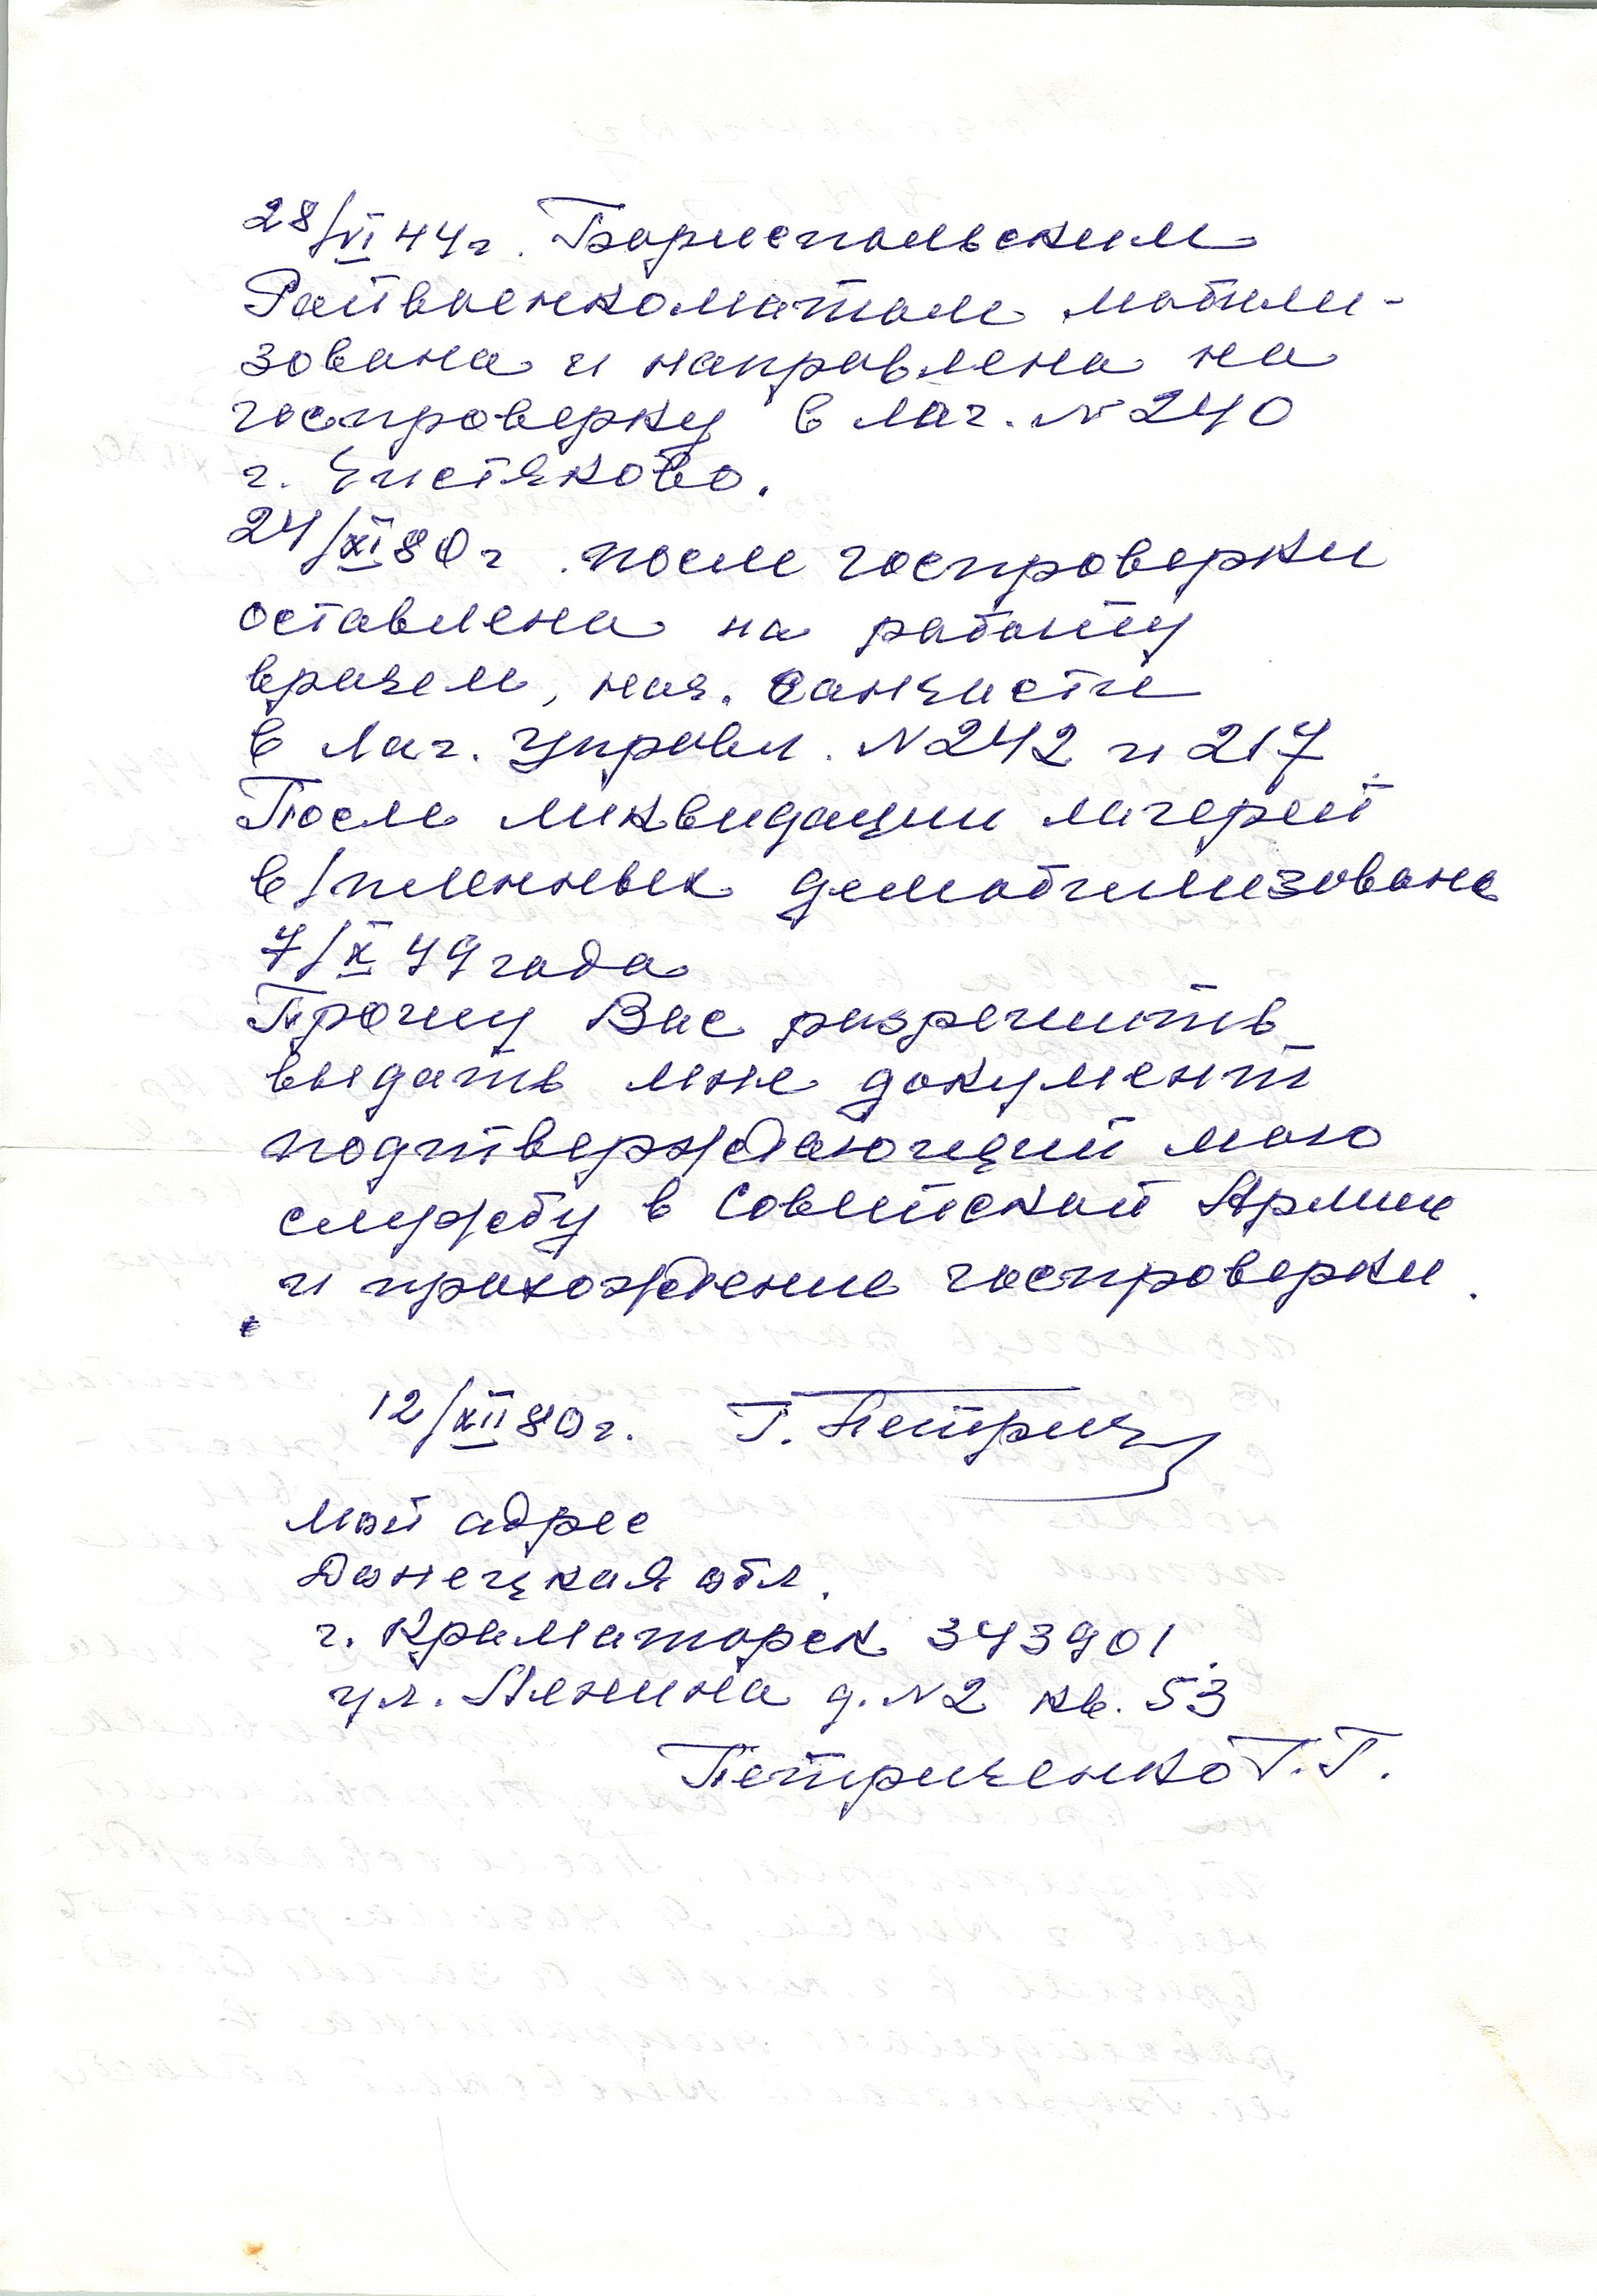 28/VI 44г. Бориспольским
Райвоенкоматом мобили-
зована и направлена на
госпроверку в лаг. N 240
г. Чистяково.
24/XI 80г после госпроверки
оставлена на работу
врачем, нач. санчасти
в лаг. управл. N 242 и 217
После ликвидации лагерей
в/пленных демобилизована
7/X 49 года
Прошу Вас разрешить
выдать мне документ
подтверждающий мою
службу в Советской Армии
и прохождение госпроверки.
12/XII 80г. Г. Петрич
Мой адрес
Донецкая обл.
г. Краматорск 343901.
ул. Ленина д. N2 кв. 53
Петриченко Г. Г.